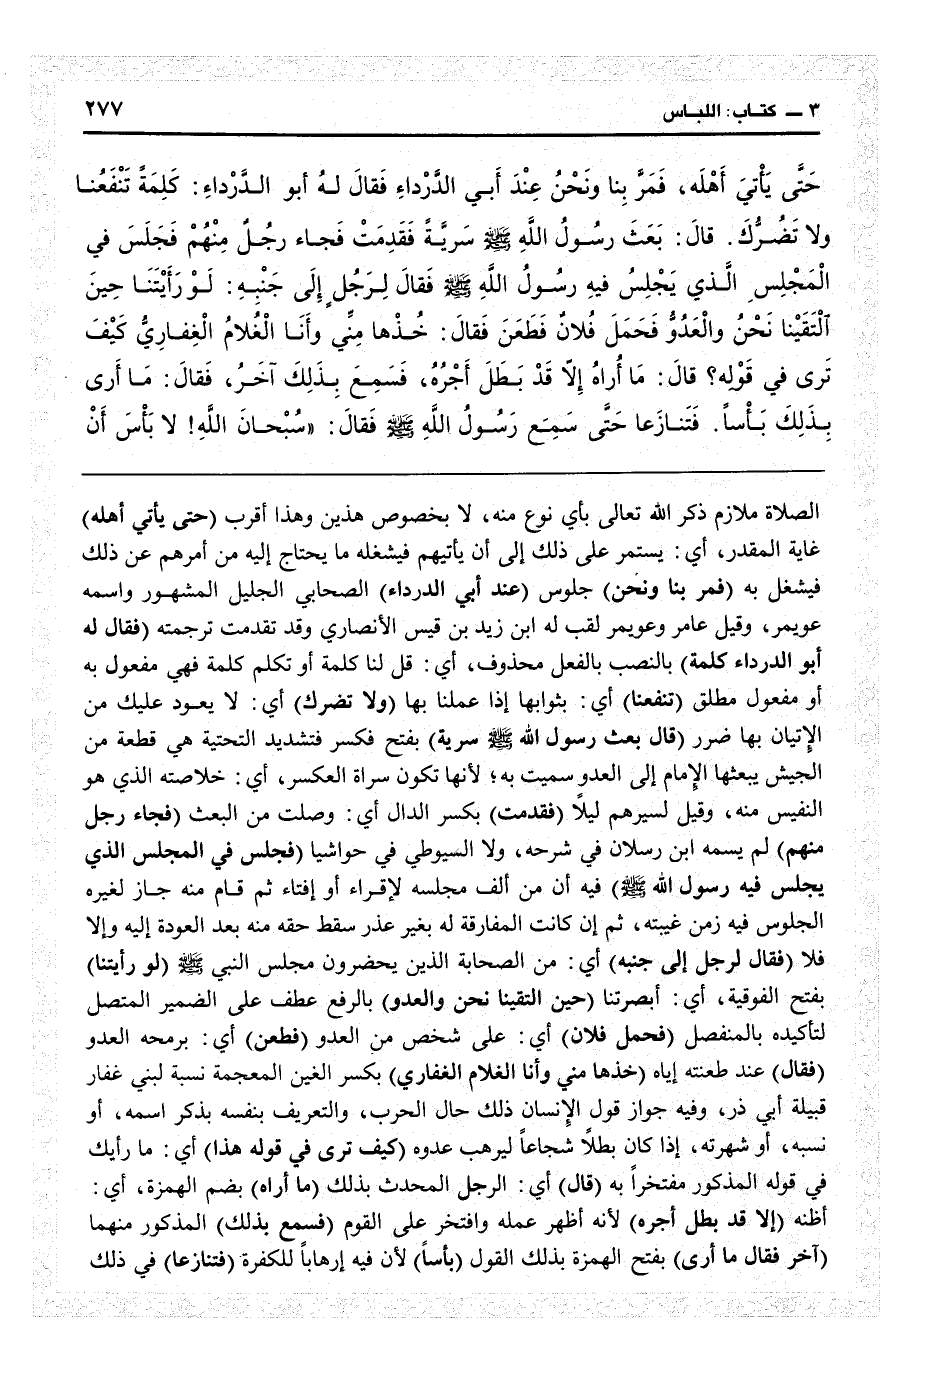 ٣ ـ كتـاب: اللبـاس ٢٧٧
حَتَّى يَأْتيَ أَهْلَه، فَمَرَّ بِنا ونَحْنُ عِنْدَ أَبـي الدَّرْداءِ فَقالَ لـهُ أبو الـدَّرْداءِ: كَلِمَةً تَنْفَعُنـا
ولا تَضُـرُّكَ. قالَ: بَعَثَ رسُـولُ اللَّهِ ﷺ سَريَّـةً فَقَدِمَتْ فَجـاء رجُـلٌ مِنْهُمْ فَجَلَسَ في
الْمَجْلِسِ الَّـذي يَجْلِسُ فيهِ رسُـولُ اللَّهِ ﷺ فَقالَ لِـرَجُلٍ إلَى جَنْبِـهِ: لَـوْ رَأَيْتَنَـا حِينَ
آلْتَقَيْنا نَحْنُ والْعَدُوُّ فَحَمَلَ فُلانٌ فَطَعَنَ فَقالَ: خُـذْها مِنِّي وأَنَـا الْغُلامُ الْغِفـاريُّ كَيْفَ
تَرى في قَوْلِه؟ قالَ: مَا أُراهُ إلّا قَدْ بَـطَلَ أَجْرُهُ، فَسَمِـعَ بِـذلِكَ آخَـرُ، فَقالَ: مَـا أَرى
بِـذَلِكَ بَـأْساً. فَتَنـازَعا حَتَّى سَمِـعَ رَسُـولُ اللَّهِ ﷺ فَقالَ: «سُبْحـانَ اللَّهِ! لا بَأْسَ أَنْ
الصلاة ملازم ذكر الله تعالى بأي نوع منه، لا بخصوص هذين وهذا أقرب (حتى يأتي أهله)
غاية المقدر، أي: يستمر على ذلك إلى أن يأتيهم فيشغله ما يحتاج إليه من أمرهم عن ذلك
فيشغل به (فمر بنا ونحن) جلوس (عند أبي الدرداء) الصحابي الجليل المشهـور واسمه
عويمر، وقيل عامر وعويمر لقب له ابن زيد بن قيس الأنصاري وقد تقدمت ترجمته (فقال له
أبو الدرداء كلمة) بالنصب بالفعل محذوف، أي: قل لنا كلمة أو تكلم كلمة فهي مفعول به
أو مفعول مطلق (تنفعنا) أي: بثوابها إذا عملنا بها (ولا تضرك) أي: لا يعـود عليك من
الإتيان بها ضرر (قال بعث رسول الله ﷺ سرية) بفتح فكسر فتشديد التحتية هي قطعة من
الجيش يبعثها الإمام إلى العدو سميت به؛ لأنها تكون سراة العكسر، أي: خلاصته الذي هو
النفيس منه، وقيل لسيرهم ليلاً (فقدمت) بكسر الدال أي: وصلت من البعث (فجاء رجل
منهم) لم يسمه ابن رسلان في شرحه، ولا السيوطي في حواشيا (فجلس في المجلس الذي
يجلس فيه رسول الله ﷺ) فيه أن من ألف مجلسه لإقراء أو إفتاء ثم قام منه جاز لغيره
الجلوس فيه زمن غيبته، ثم إن كانت المفارقة له بغير عذر سقط حقه منه بعد العودة إليه وإلا
فلا (فقال لرجل إلى جنبه) أي: من الصحابة الذين يحضرون مجلس النبي ﷺ (لو رأيتنا)
بفتح الفوقية، أي: أبصرتنا (حين التقينا نحن والعدو) بالرفع عطف على الضمير المتصل
لتأكيده بالمنفصل (فحمل فلان) أي: على شخص من العدو (فطعن) أي: برمحه العدو
(فقال) عند طعنته إياه (خذها مني وأنا الغلام الغفاري) بكسر الغين المعجمة نسبة لبني غفار
قبيلة أبي ذر، وفيه جواز قول الإنسان ذلك حال الحرب، والتعريف بنفسه بذكر اسمه، أو
نسبه، أو شهرته، إذا كان بطلاً شجاعاً ليرهب عدوه (كيف ترى في قوله هذا) أي: ما رأيك
في قوله المذكور مفتخراً به (قال) أي: الرجل المحدث بذلك (ما أراه) بضم الهمزة، أي:
أظنه (إلا قد بطل أجره) لأنه أظهر عمله وافتخر على القوم (فسمع بذلك) المذكور منهما
(آخر فقال ما أرى) بفتح الهمزة بذلك القول (بأساً) لأن فيه إرهاباً للكفرة (فتنازعا) في ذلك